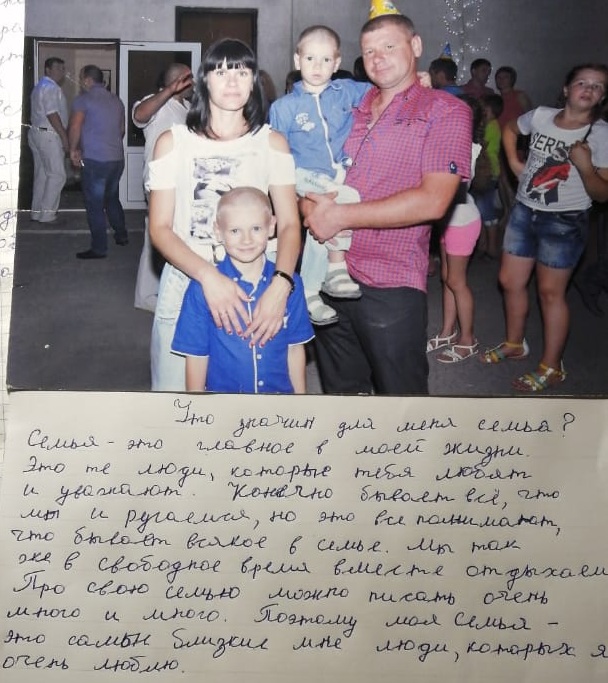 Что значит для меня семья?
Семья - это главное в моей жизни.
Это те люди, которые тебя любят
и уважают. Конечно бывает всё, что
мы и ругаемся, но это все понимают,
что бывает всякое в семье. Мы так
же в свободное время вместе отдыхаем
Про свою семью можно писать очень
много и много. Поэтому моя семья -
это самые близкие мне люди, которых я
очень люблю.